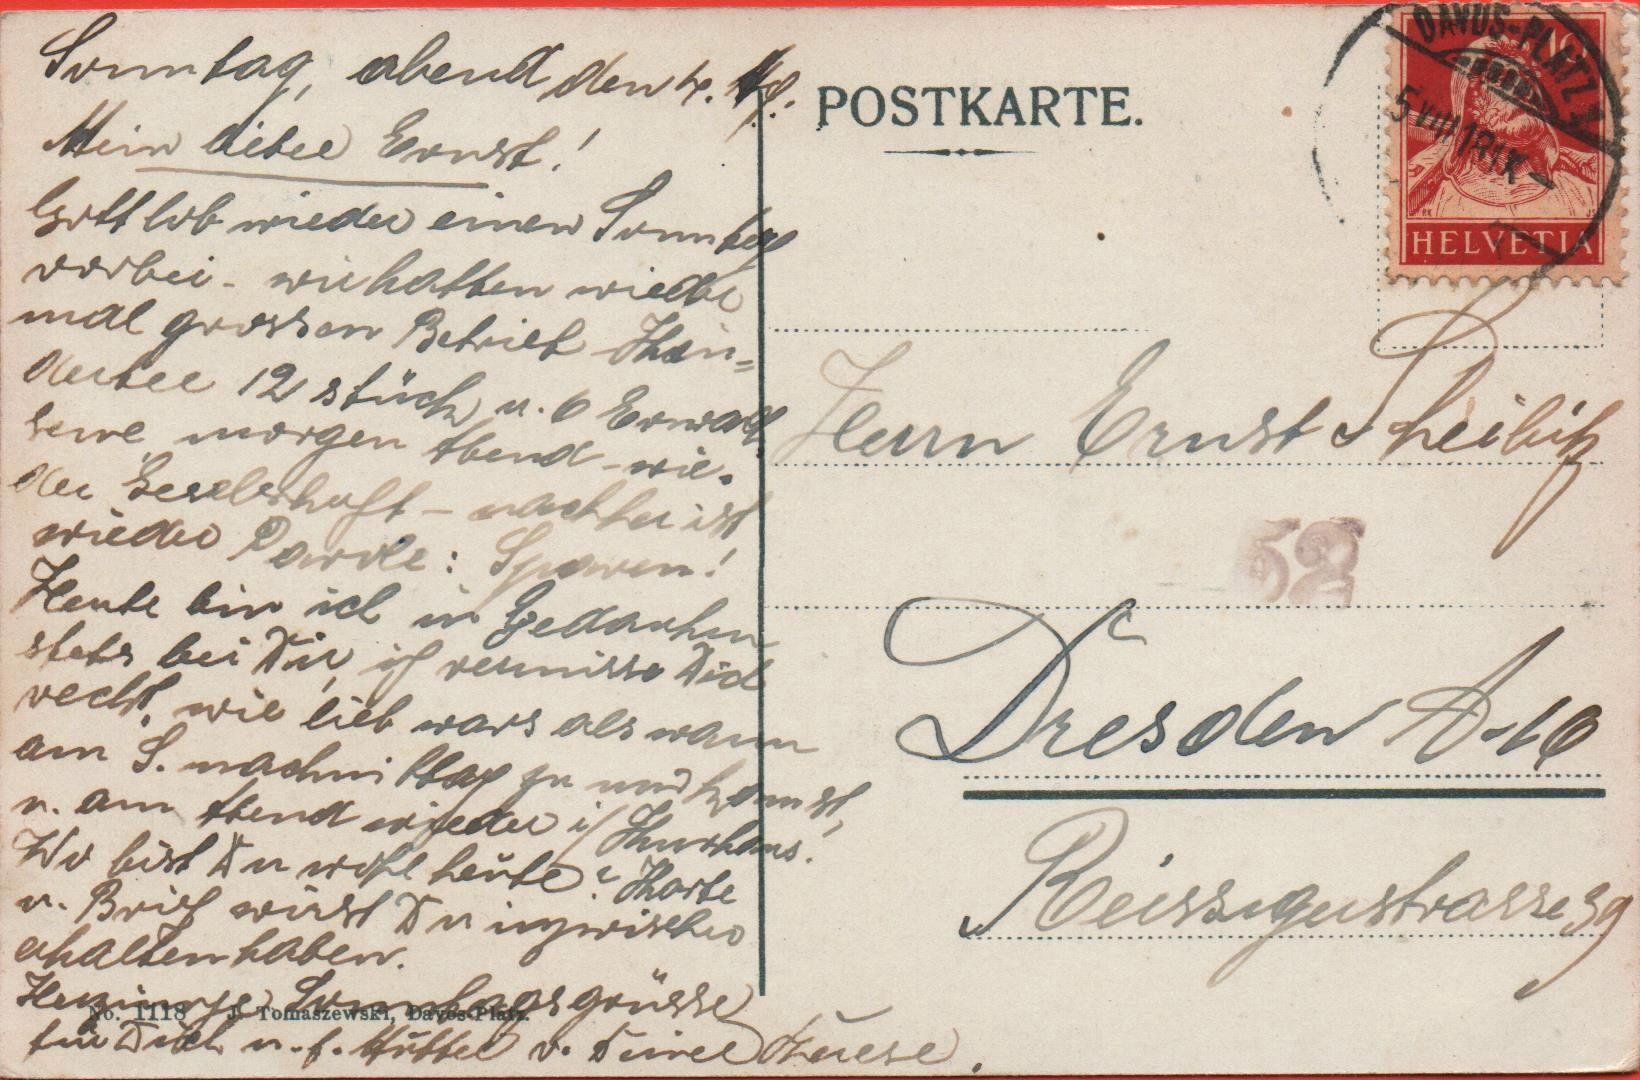 Sonntag, abend den 4.
Mein lieber Ernst!
Gottlob wieder einen Sonntag
vorbei - wir hatten wieder
mal grossen Betrieb Kin=
dertee 12 stück u. 6 Erwach
sene morgen Abend - wie.
der Gesellschaft - nachher ist
wieder Parole: Sparen!
Heute bin ich in Gedanken
stets bei Dir, ich vermisse Dich
recht, wie lieb wars als wann
am S. nachmittag zu uns kamst,
u. am Abend wieder i/ Kurhaus.
Wo bist Du wohl heute? Karte
u. Brief wirst Du inzwischen
erhalten haben.
Herzinnige Sonntagsgrüsse
für Dich u. f. Mutter v. Deiner
No. 1118 J. Tomaszewski, Davos-Platz.
POSTKARTE.
DAVOS-PLATZ
10
HELVETIA
Herrn Ernst Scheibitz
52
Dresden A-16
Reissigerstrasse 39